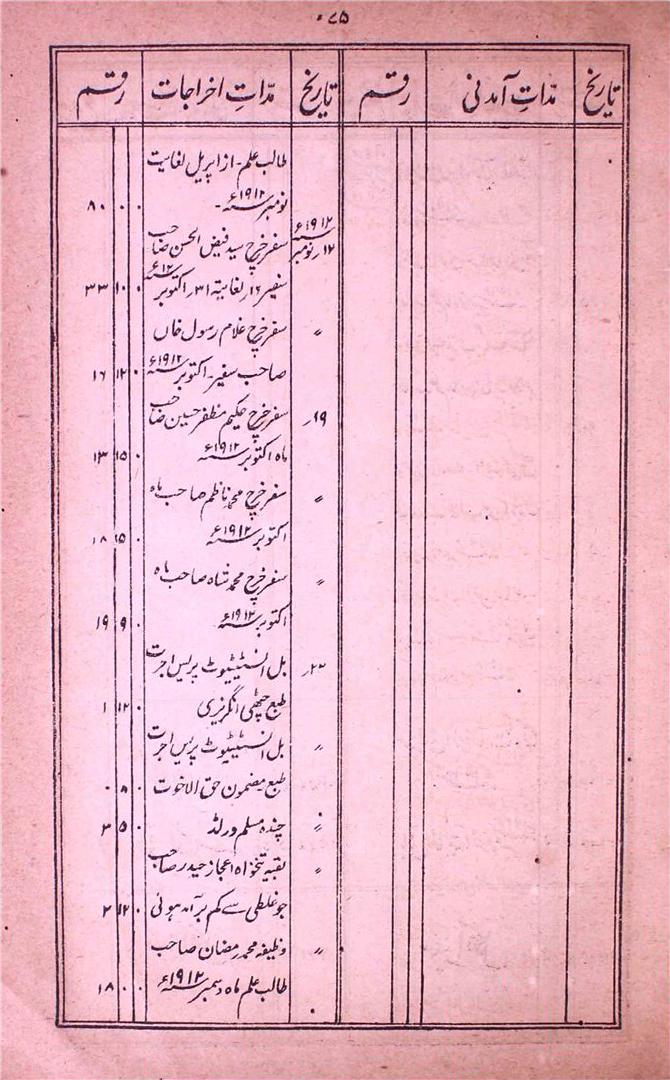 ۷۵
تاریخ مدّاتِ آمدنی رقم تاریخ مدّاتِ اخراجات رقم
طالب علم۔ از اپریل لغایت
نومبر ۱۹۱۲ء۔ ۸۰ ۰ ۰
۱۹۱۲ء
۱۲ر نومبر سفر خرچ سید فیض الحسن صاحب
سفیر ۱۶ر لغایتہ ۳۱ر اکتوبر ۱۲ء ۳۳ ۱۰ ۰
〃 سفر خرچ غلام رسول خاں
صاحب سفیر۔ اکتوبر ۱۹۱۲ء ۱۶ ۱۲ ۰
۱۹ر سفر خرچ حکیم مظفر حسین صاحب
ماہ اکتوبر ۱۹۱۲ء ۱۳ ۱۵ ۰
〃 سفر خرچ محمد ناظم صاحب ماہ
اکتوبر ۱۹۱۲ء ۱۸ ۱۵ ۰
〃 سفر خرچ محمد شاہ صاحب ماہ
اکتوبر ۱۹۱۲ء ۱۹ ۹ ۰
۲۲ر بل انسٹیٹیوٹ پریس اجرت
طبع چٹھی انگریزی ۱ ۱۲ ۰
〃 بل انسٹیٹیوٹ پریس اجرت
طبع مضمون حق الاخوت ۰ ۸ ۰
〃 چندہ مسلم ورلڈ ۳ ۵ ۰
〃 بقیہ تنخواہ اعجاز حیدر صاحب
جو غلطی سے کم برآمد ہوئی ۲ ۱۲ ۰
〃 وظیفہ محمد رمضان صاحب
طالب علم ماہ دسمبر ۱۹۱۲ء ۱۸ ۰ ۰